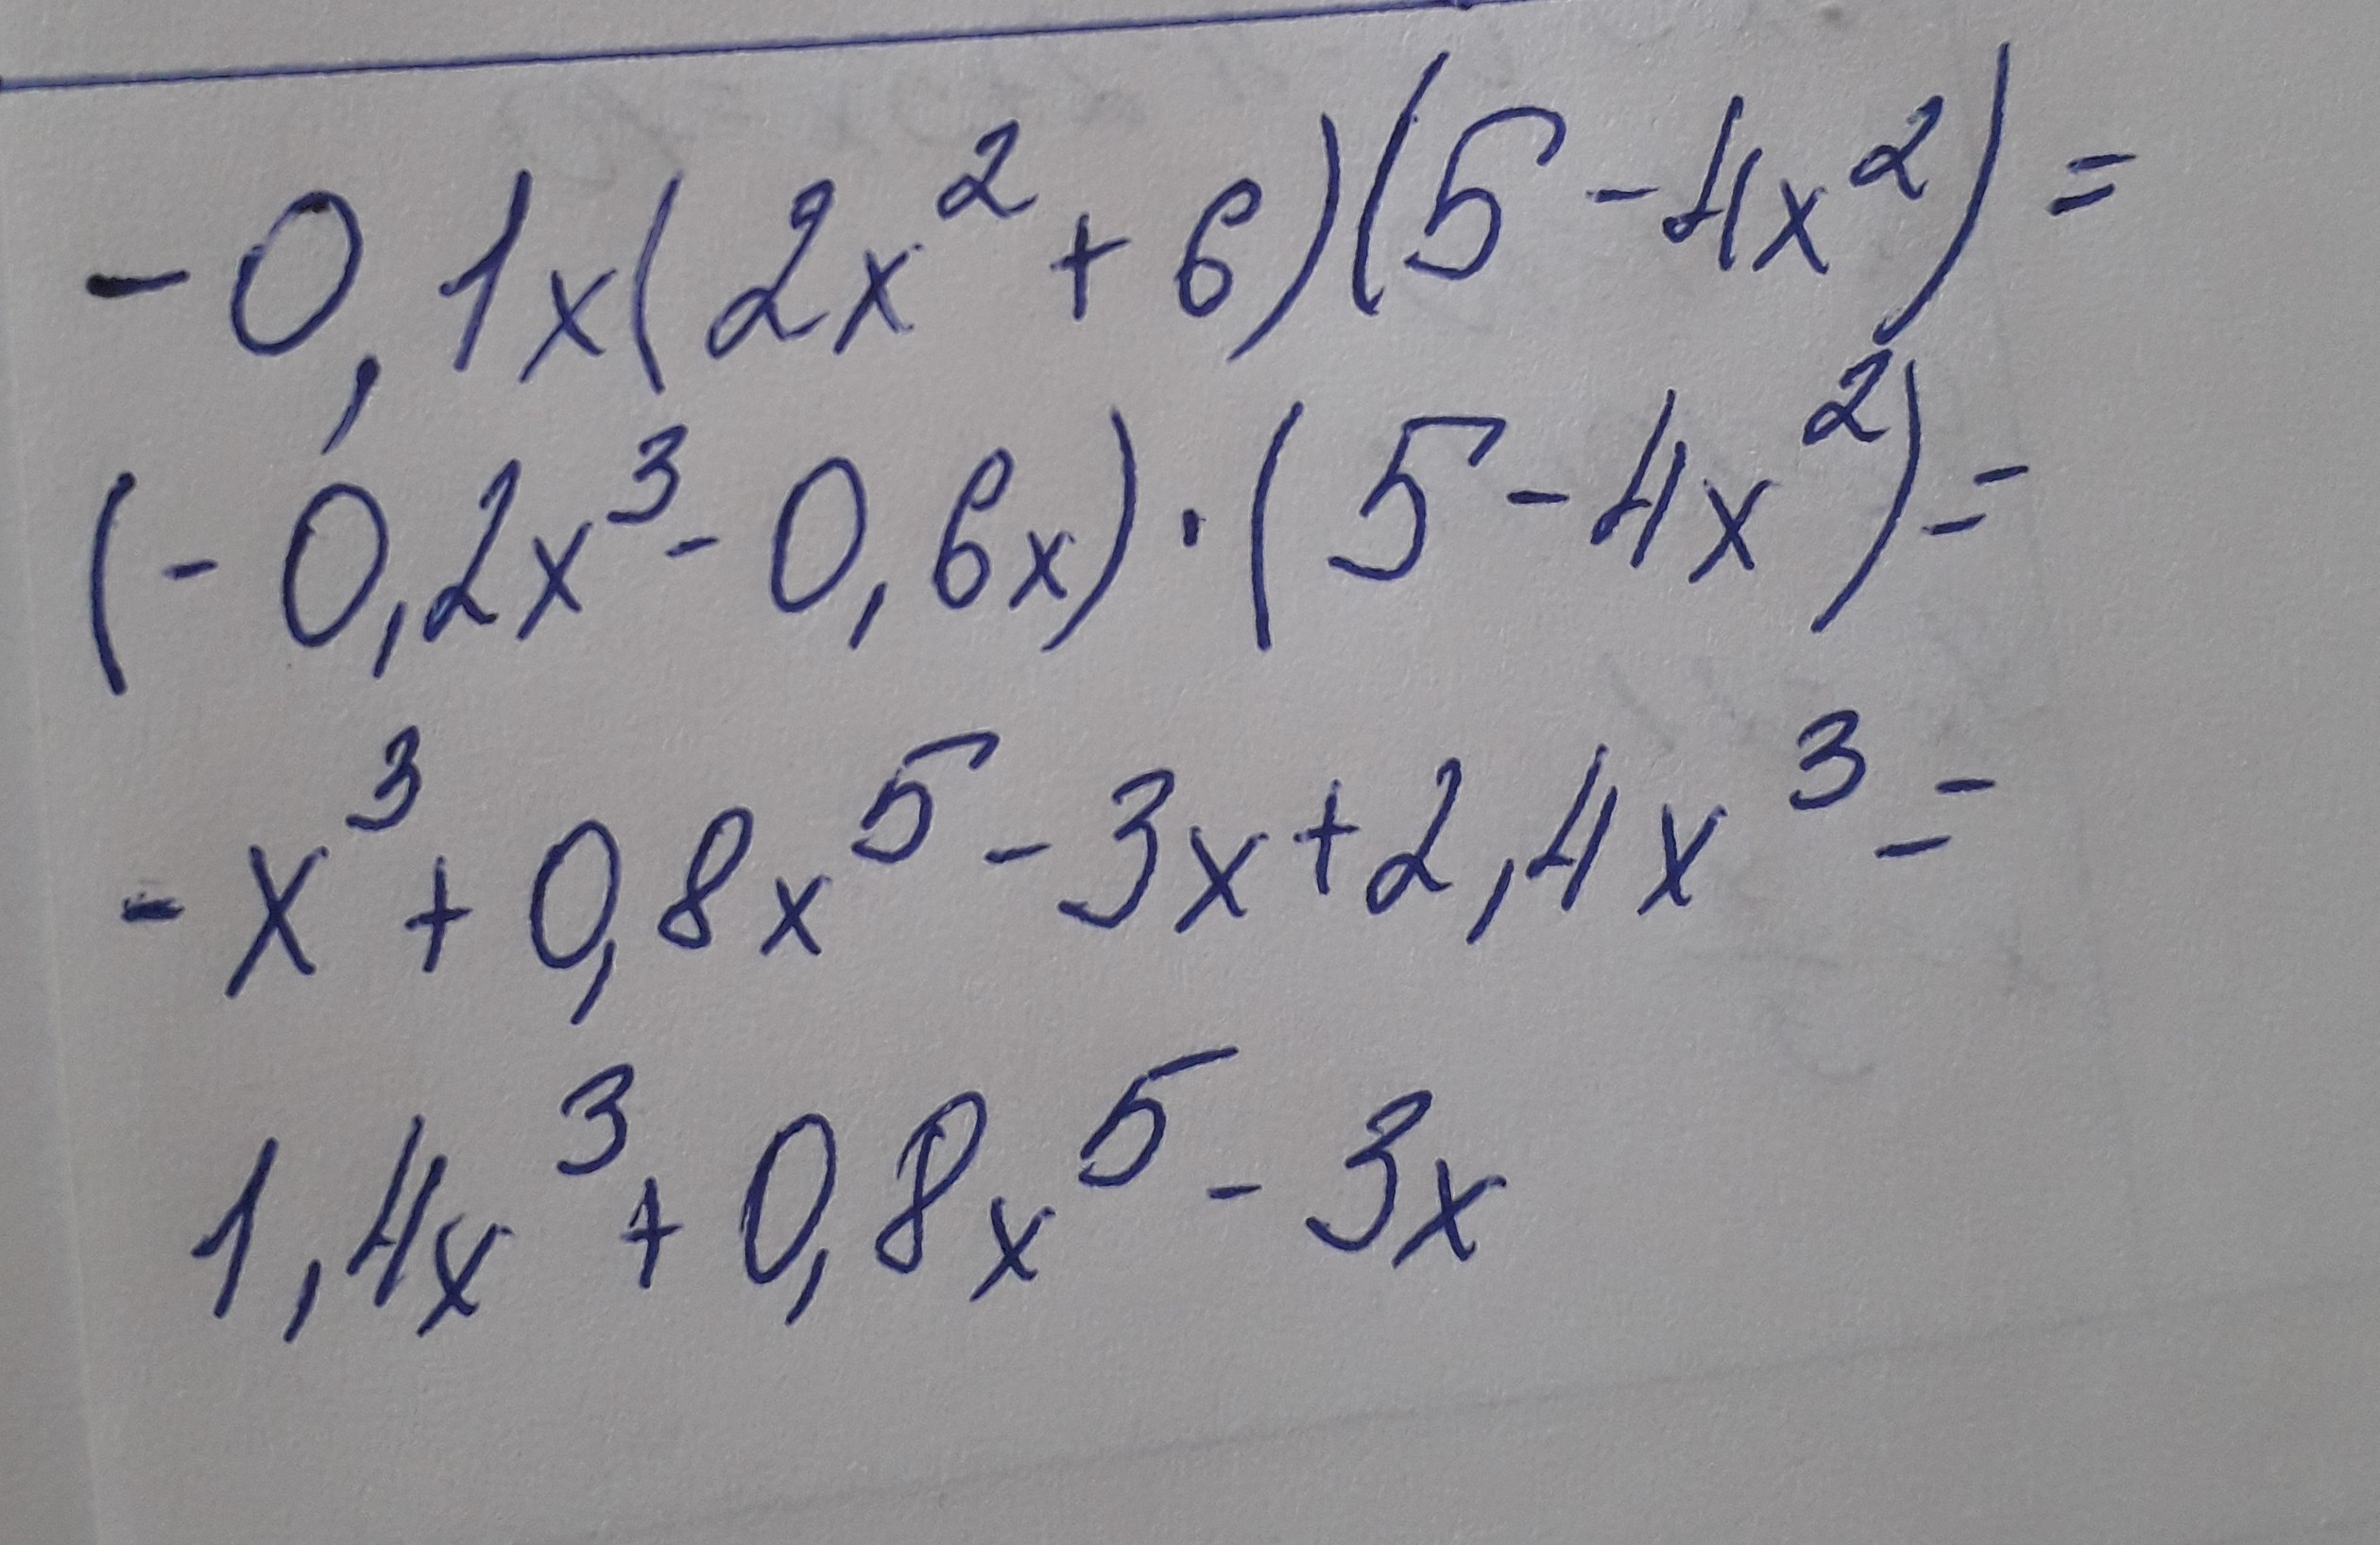 -0,1x(2x²+6)(5-4x²)=
(-0,2x³-0,6x)·(5-4x²)=
-x³+0,8x⁵-3x+2,4x³=
1,4x³+0,8x⁵-3x